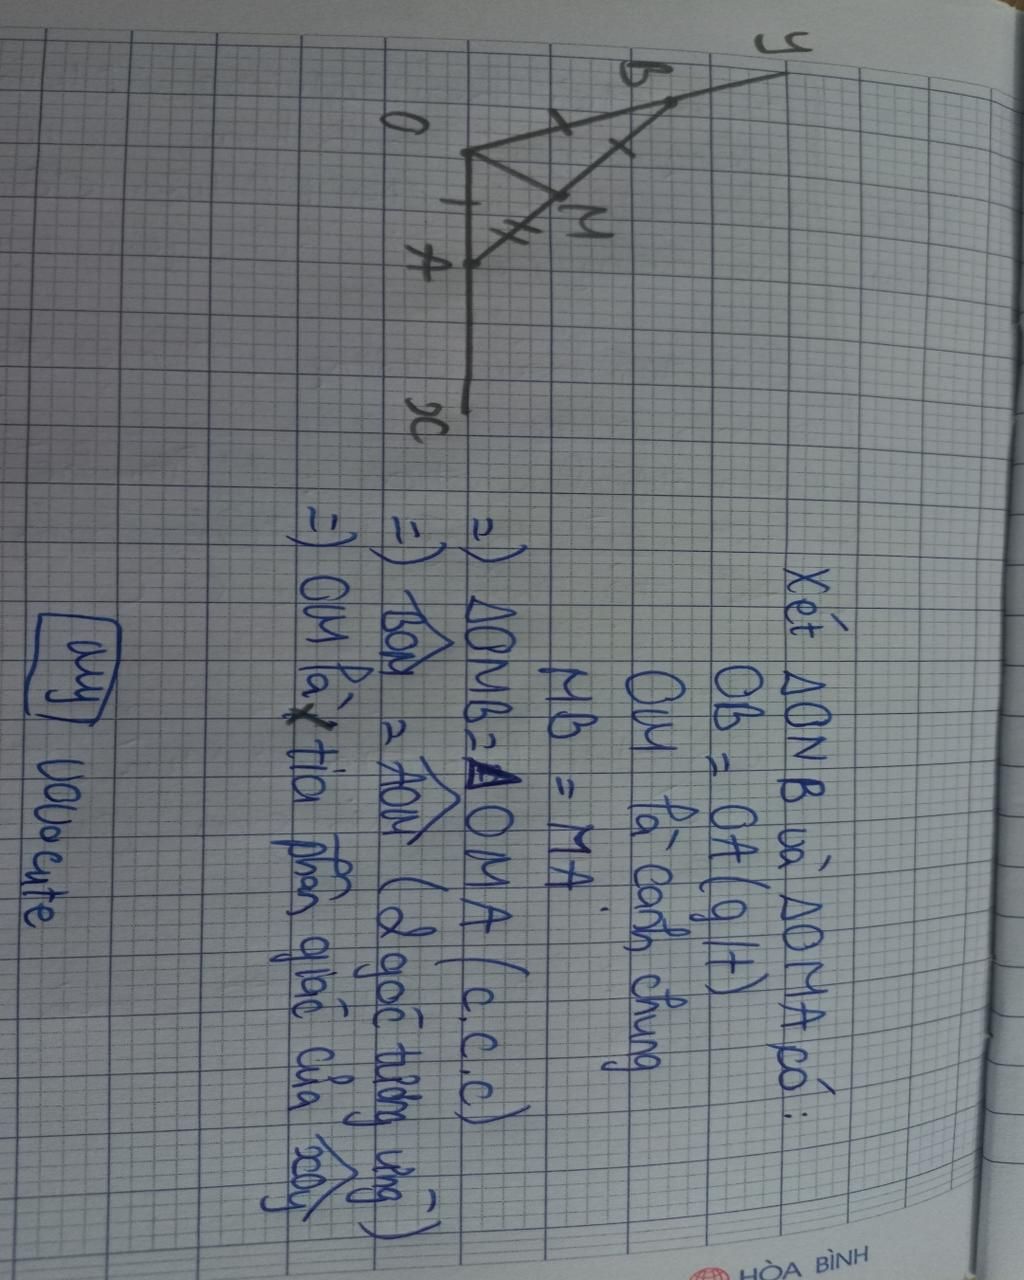 y
B
O
M
A
x
Xét ΔONB và ΔOMA có:
OB = OA (g/t)
OM là cạnh chung
MB = MA
=) ΔOMB = ΔOMA (c.c.c)
=) BOM̂ = AOM̂ (2 góc tương ứng)
=) OM là tia phân giác của xOŷ
my vovocute
HÒA BÌNH